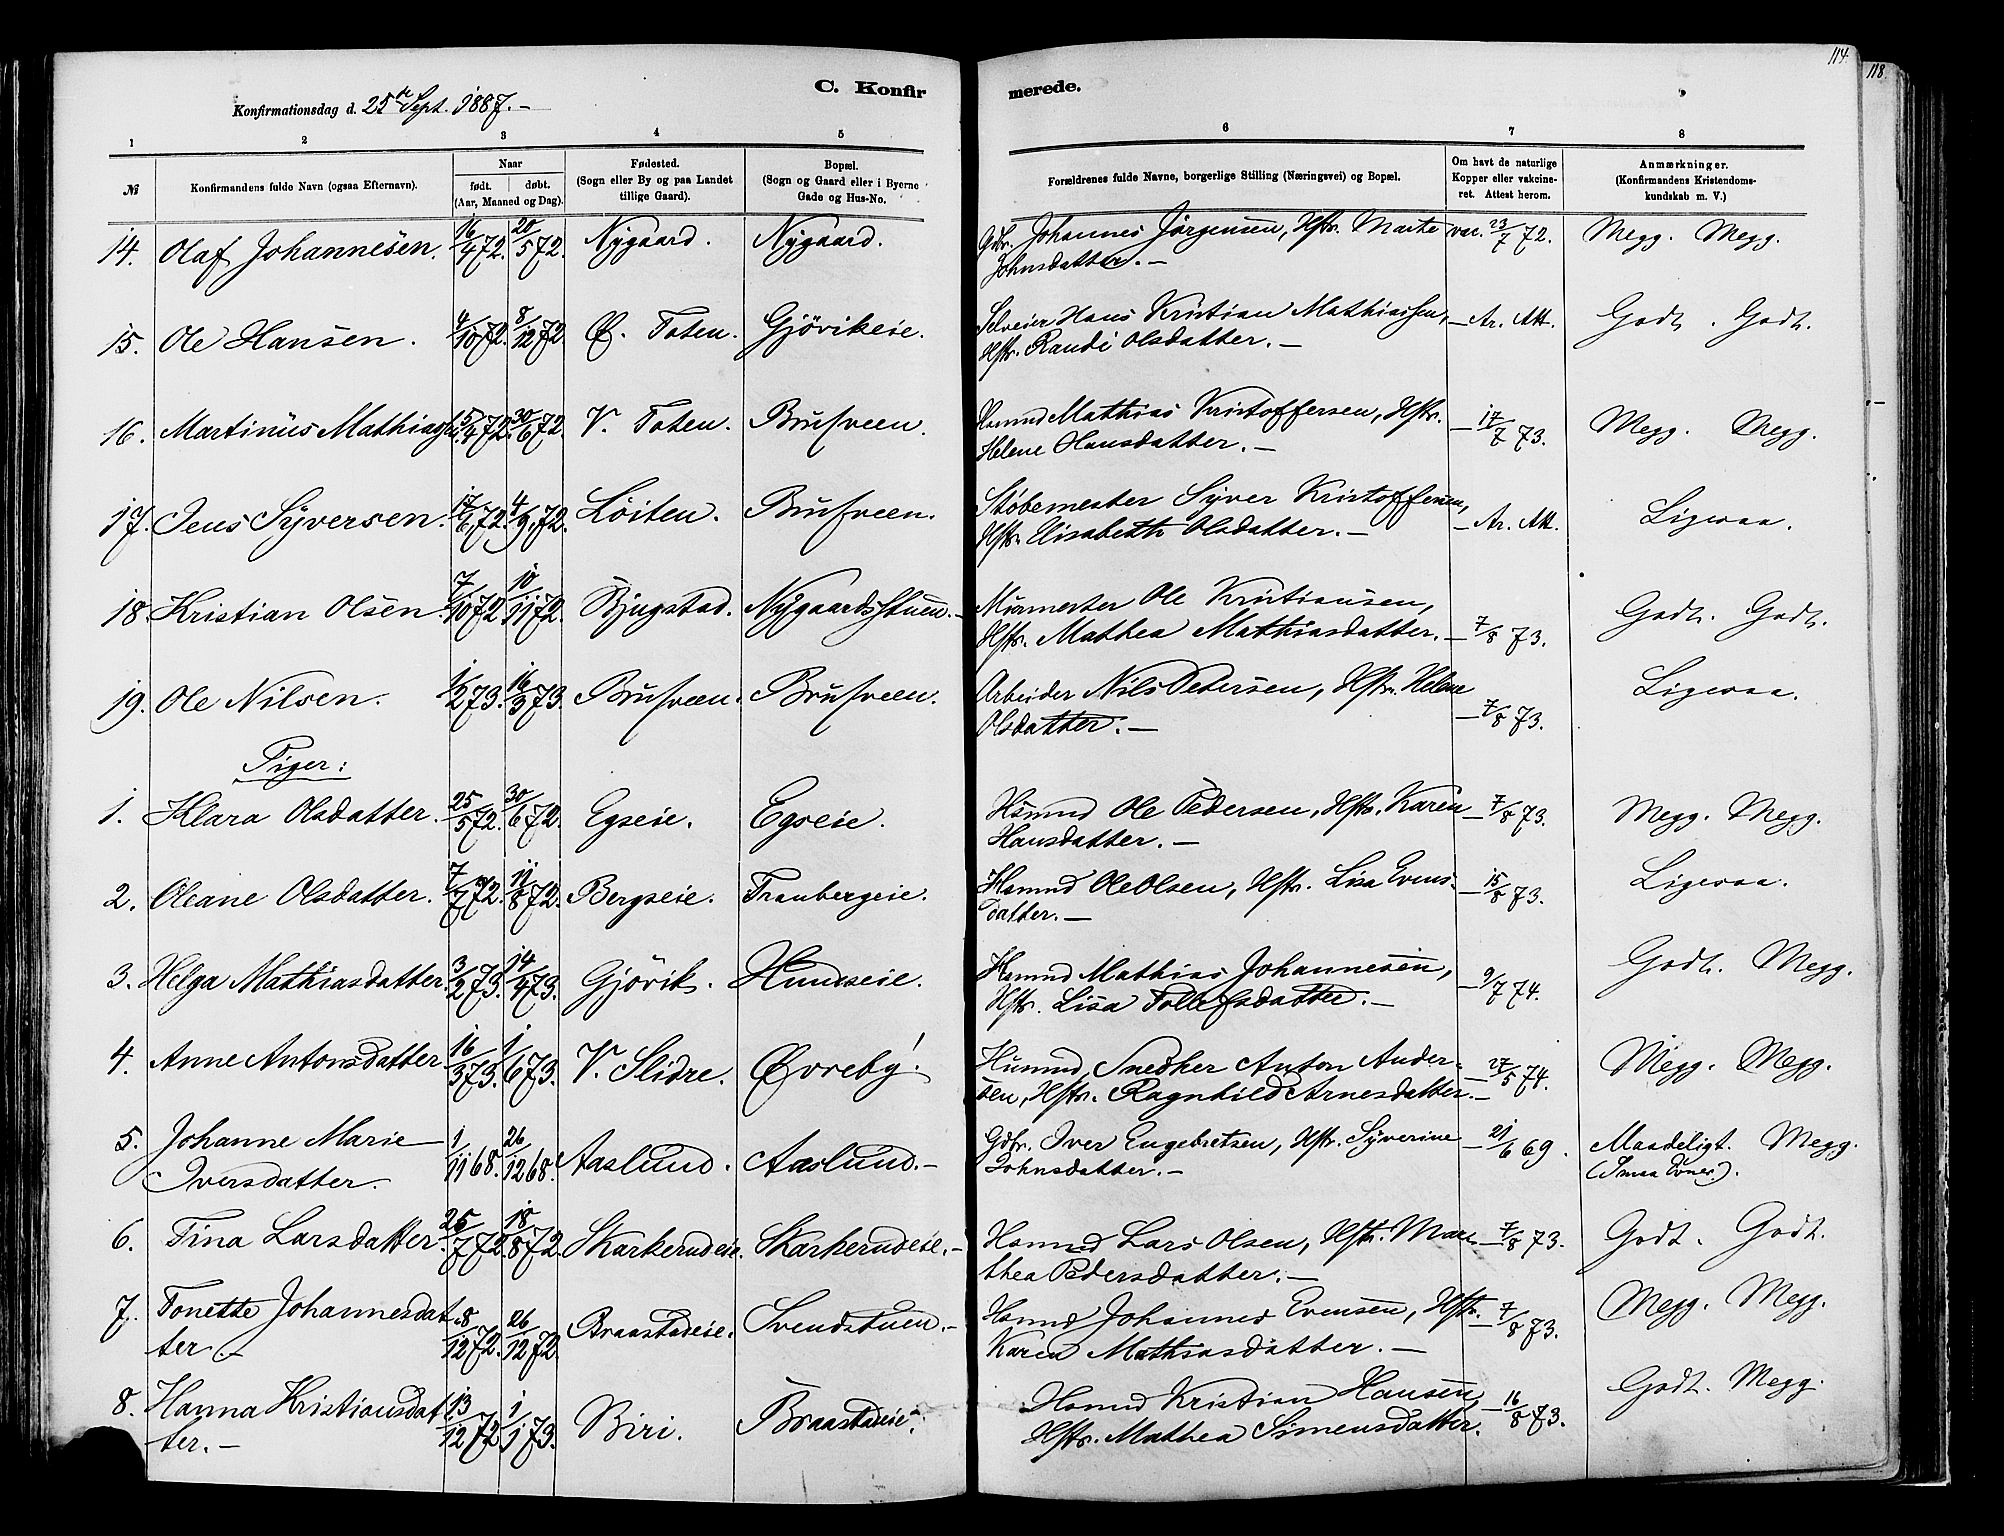 114.
118
C. Konfirmerede.
Konfirmationsdag d. 25de Sept. 1887.-
1 2 3 4 5 6 7 8
№ Konfirmandens fulde Navn (ogsaa Efternavn). Naar født. døbt. (Aar, Maaned og Dag). Fødested. (Sogn eller By og paa Landet tillige Gaard). Bopæl. (Sogn og Gaard eller i Byerne Gade og Hus-No. Forældrenes fulde Navne, borgerlige Stilling (Næringsvei) og Bopæl. Om havt de naturlige Kopper eller vakcineret. Attest herom. Anmærkninger. (Konfirmandens Kristendomskundskab m. V.)
14. Olaf Johannesen. 16/4 72. 20/5 72. Nygaard. Nygaard. Gdbr. Johannes Jörgensen, Hstr. Marte vac. 23/7 72. Megg. Megg.
Johnsdatter. —
15. Ole Hansen. 4/10 72. 8/12 72. Ø. Toten. Gjövikeie. Selveier Hans Kristian Mathiassen, — Ar. Att. Godt. Godt.
Hstr. Randi Olsdatter. —
16. Martinus Mathiassen 5/4 72. 30/6 72. V. Toten. Brufveen. Hsmnd Mathias Kristoffersen, Hstr. — 17/7 73. Megg. Megg.
Helene Hansdatter. —
17. Jens Syversen. 17/6 72. 4/9 72. Löiten. Brufveen. Stöbemester Syver Kristoffersen, — Ar. Att. Ligesaa.
Hstr. Elisabeth Olsdatter. —
18. Kristian Olsen. 7/10 72. 10/11 72. Bjugstad. Nygaardsstuen. Murmester Ole Kristiansen,
Hstr. Mathea Mathiasdatter. — 7/8 73. Godt. Godt.
19. Ole Nilsen. 1/2 73. 16/3 73. Brufveen. Brufveen. Arbeider Nils Pedersen, Hstr. Helene
Olsdatter. — — 7/8 73. Ligesaa.
Piger:
1. Klara Olsdatter. 25/5 72. 30/6 72. Egseie. Egseie. Hsmnd Ole Pedersen, Hstr. Karen — 7/8 73. Megg. Megg.
Hansdatter. —
2. Oleane Olsdatter. 7/7 72. 11/8 72. Bergseie. Tranbergeie. Hsmnd Ole Olsen, Hstr. Lisa Evens- — 15/8 73. Ligesaa.
datter. —
3. Helga Mathiasdatter. 3/2 73. 14/4 73. Gjövik. Hundseie. Hsmnd Mathias Johannesen, — 9/7 74. Godt. Megg.
Hstr. Lisa Tollefsdatter. —
4. Anne Antonsdatter 16/3 73. 1/6 73. V. Slidre. Øvreby. Husmd, Snedker Anton Ander- — 27/5 74. Megg. Megg.
sen, Hstr. Ragnhild Arnesdatter. —
5. Johanne Marie 1/11 68. 26/12 68. Aaslund. Aaslund. — Gdbr. Iver Engebretsen, Hstr. Syverine — 21/6 69. Maadeligt. Megg.
Iversdatter. Johnsdatter. — (Smaa Evner).
6. Tina Larsdatter. 25/7 72. 18/8 72. Skarkerudeie. Skarkerudeie. — Hsmnd Lars Olsen, Hstr. Mar- — 7/8 73. Godt. Godt.
thea Pedersdatter. —
7. Tonette Johannesdat- 8/12 72. 26/12 72. Braastadeie. Svendstuen. — Hsmnd Johannes Evensen, Hstr. — 7/8 73. Megg. Megg.
ter — Karen Mathiasdatter. —
8. Hanna Kristiansdat- 13/12 72. 1/1 73. Biri. Braastadeie. Hsmnd Kristian Hansen, — 16/8 73. Godt. Megg.
ter. — Hstr. Mathea Simensdatter.